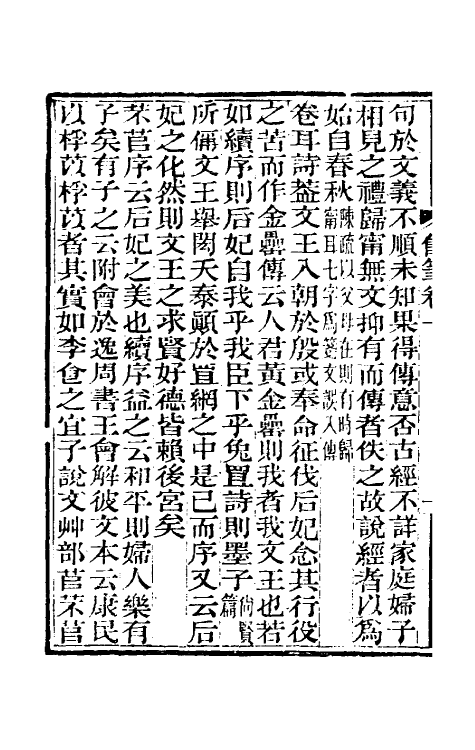 句於文義不順未知果得傳意否古經不詳家庭婦子
相見之禮歸甯無文抑有而傳者佚之故說經者以爲
始自春秋陳疏以父母在則有時歸甯耳七字爲箋文誤入傳
卷耳詩蓋文王入朝於殷或奉命征伐后妃念其行役
之苦而作金罍傳云人君黃金罍則我者我文王也若
如續序則后妃自我乎我臣下乎兔罝詩則墨子尙賢篇
所偁文王舉閎夭泰顚於罝網之中是已而序又云后
妃之化然則文王之求賢好德皆賴後宮矣
芣苢序云后妃之美也續序益之云和平則婦人樂有
子矣有子之云附會於逸周書王會解彼文本云康民
以桴苡桴苡者其實如李食之宜子說文艸部苢芣苢